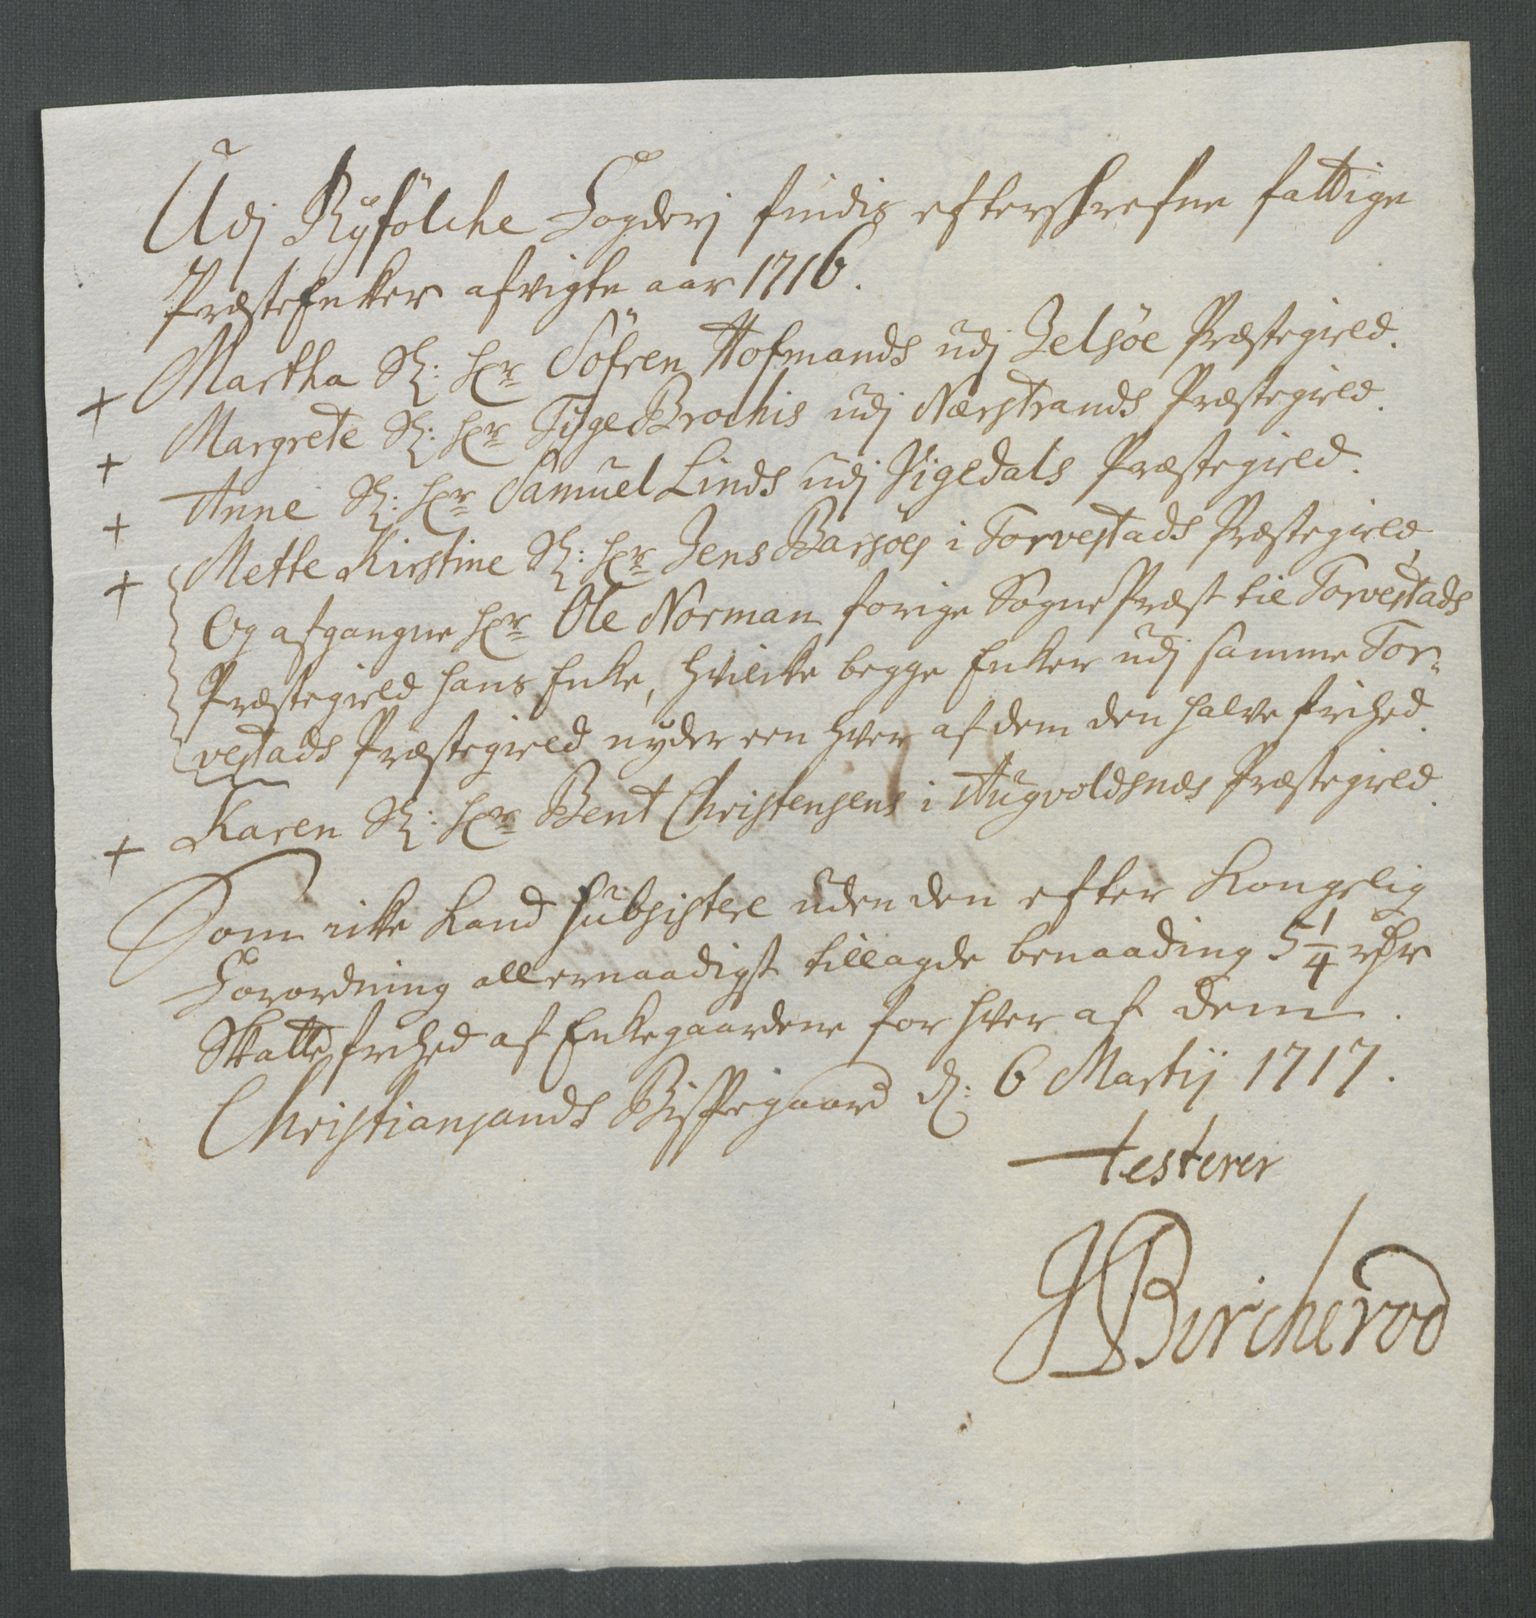 Udj Ryfölche Fogderj findis efterskrefne fattige
PræsteEnker afvigte aar 1716.
+ Martha Sl: Hr Söfren Hofmands udj Jelsöe Præstegield.
+ Margrete Sl: Hr Tyge Brochis udj Nærstrands Præstegield.
+ Anne Sl: Hr Samuel Linds udj Vigedals Præstegield.
+ Mette Kirstine Sl: Hr Jens Barsöes i Torvestads Præstegield
Og afgangne Hr Ole Norman forige SognePræst til Torvestads
Præstegield hans Enke, hvilcke begge Enker udj samme Tor-
vestads Præstegield nyder een hver af dem den halve frihed.
+ Karen Sl: Hr Bent Christensens i Augvoldsnæs Præstegield.
Som icke kand subsistere uden den efter Kongelig
Forordning allernaadigst tillagde benaading 5 1/4 rdr
Skatte frihed af Enkegaardene for hver af dem.
Christiansands Bispegaard d: 6 Martij 1717.
testerer
JBircherod